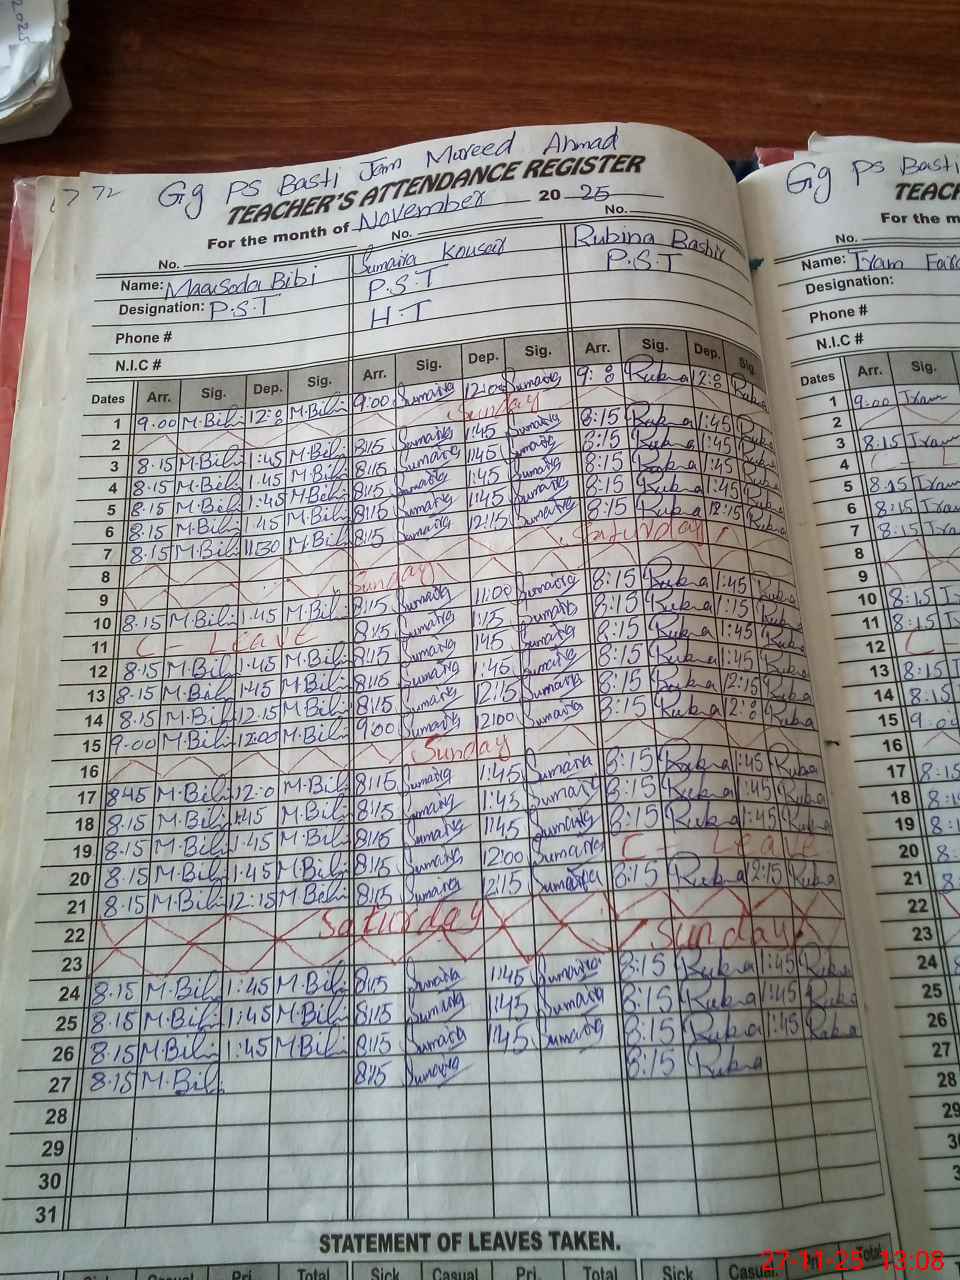 2025
72 Gg PS Basti Jam Mureed Ahmad
TEACHER'S ATTENDANCE REGISTER
For the month of November 2025
No. No. No.
Name: Maqsoda Bibi Sumaira Kousar Rubina Bashir
Designation: P.S.T P.S.T P.S.T
Phone # H.T
N.I.C #
Dates Arr. Sig. Dep. Sig. Arr. Sig. Dep. Sig. Arr. Sig. Dep. Sig.
1 9.00 M.Bibi M.Bibi 9:00 Sumaira 12:00 Sumaira Rubina Rubina
2 Sunday
3 8.15 M.Bibi 1:45 M.Bibi 8:15 Sumaira 1:45 Sumaira 8:15 Rubina 1:45 Rubina
4 8.15 M.Bibi 1.45 M.Bibi 8:15 Sumaira 1:45 Sumaira 8:15 Rubina 1:45 Rubina
5 8.15 M.Bibi 1:45 M.Bibi 8:15 Sumaira 1:45 Sumaira 8:15 Rubina 1:45 Rubina
6 8.15 M.Bibi 1.45 M.Bibi 8:15 Sumaira 1:45 Sumaira 8:15 Rubina 1:45 Rubina
7 8.15 M.Bibi 11:30 M.Bibi 8:15 Sumaira 12:15 Sumaira 8:15 Rubina 12:15 Rubina
8 Saturday
9 Sunday
10 8.15 M.Bibi 1.45 M.Bibi 8:15 Sumaira 11:00 Sumaira 8:15 Rubina 1:45 Rubina
11 C - Leave 8:15 Sumaira 1:15 Sumaira 8:15 Rubina 1:15 Rubina
12 8.15 M.Bibi 1:45 M.Bibi 8:15 Sumaira 1:45 Sumaira 8:15 Rubina 1:45 Rubina
13 8.15 M.Bibi 1:45 M.Bibi 8:15 Sumaira 1:45 Sumaira 8:15 Rubina 1:45 Rubina
14 8.15 M.Bibi 12.15 M.Bibi 8:15 Sumaira 12:15 Sumaira 8:15 Rubina 12:15 Rubina
15 9.00 M.Bibi 12:00 M.Bibi 9:00 Sumaira 12:00 Sumaira 8:15 Rubina Rubina
16 Sunday
17 8:45 M.Bibi M.Bibi 8:15 Sumaira 1:45 Sumaira 8:15 Rubina 1:45 Rubina
18 8.15 M.Bibi 1:45 M.Bibi 8:15 Sumaira 1:45 Sumaira 8:15 Rubina 1:45 Rubina
19 8.15 M.Bibi 1.45 M.Bibi 8:15 Sumaira 1:45 Sumaira 8:15 Rubina 1:45 Rubina
20 8.15 M.Bibi 1:45 M.Bibi 8:15 Sumaira 12:00 Sumaira C - Leave
21 8.15 M.Bibi 12:15 M.Bibi 8:15 Sumaira 12:15 Sumaira 8:15 Rubina 12:15 Rubina
22 Saturday
23 Sunday
24 8.15 M.Bibi 1:45 M.Bibi 8:15 Sumaira 1:45 Sumaira 8:15 Rubina 1:45 Rubina
25 8.15 M.Bibi 1:45 M.Bibi 8:15 Sumaira 1:45 Sumaira 8:15 Rubina 1:45 Rubina
26 8.15 M.Bibi 1:45 M.Bibi 8:15 Sumaira 1:45 Sumaira 8:15 Rubina 1:45 Rubina
27 8.15 M.Bibi 8:15 Sumaira 8:15 Rubina
28
29
30
31
STATEMENT OF LEAVES TAKEN.
Sick Casual Pri. Total Sick Casual Pri. Total Sick Casual Total
Gg PS Basti
For the m
No.
Name: Iram
Designation:
Phone #
N.I.C #
Dates Arr. Sig.
1 9.00 Iram
2
3 8.15 Iram
4 C - L
5 8.15 Iram
6 8:15 Iram
7 8:15 Iram
8
9
10 8:15
11 8:15
12 C
13 8:15
14 8:15
15
16
17 8:15
18
19
20
21
22
23
24
25
26
27
28
29
27-11-25 13:08